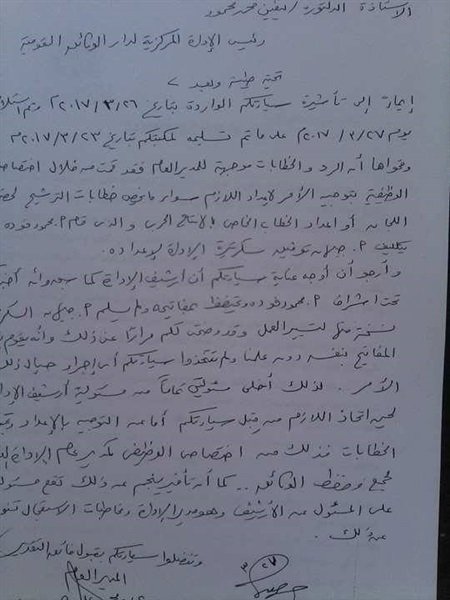 الأستاذة الدكتورة / نيفين محمد محمود
رئيس الإدارة المركزية لدار الوثائق القومية
تحية طيبة وبعد
إيماءً إلى تأشيرة سيادتكم الواردة بتاريخ ٢٠١٧/٣/٢٦ وتم استلا
يوم ٢٠١٧/٣/٢٧ على ما تم تسليمه لمكتبكم بتاريخ ٢٠١٧/٣/٢٣ م
وفحواها أنه الرد والخطابات موجهة للمدير العام فقد قمت من خلال اختصاصا
الوظيفية بتوجيه الأمر لإعداد اللازم سواء ما يخص خطابات الترشيح لحضور
اللجان أو إعداد الخطاب الخاص بالإنتاج الحربى والذى قام أ. محمود فوده
بتكليف أ. جيهان توفيق سكرتيرة الإدارة لإعداده.
وأرجو أن أوجه عناية سيادتكم أن أرشيف الإدارة كما سبق وأنه أخبر
تحت إشراف أ. محمود فوده ويحتفظ بمفاتيحه ولم يسلم أ. جيهان السكر
نسخة منها لتسيير العمل وقد وضحت لكم مرارًا عن ذلك وأنه يقوم
المفاتيح بنفسه دون علمنا ولم تتخذوا سيادتكم أى إجراء حيال ذلك
الأمر. لذلك أخلى مسئوليتى تمامًا من مسئولية أرشيف الإدا
لحين اتخاذ اللازم من قبل سيادتكم أما عن التوجيه بالإعداد
الخطابات فذلك من اختصاصى الوظيفى كمدير عام الإدارة
لجمع وحفظ الوثائق .. كما أن تأخير ينجم عن ذلك تقع مسئولية
على المسئول عن الأرشيف وهو مدير الإدارة وخاطبات الاستقبال
عن ذلك.
وتفضلوا سيادتكم بقبول فائق التقدير
المدير العام
٣/٢٧